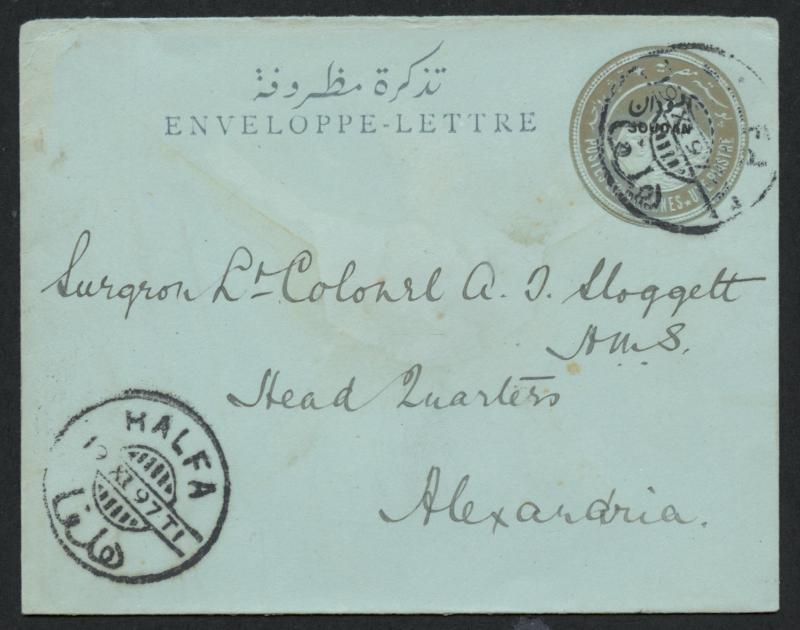 تذكرة مظروفة
ENVELOPPE-LETTRE
سودان
SOUDAN
POSTES
UNE PIASTRE
Surgeon Lt Colonel A. T. Sloggett
A.M.S.
Head Quarters
Alexandria.
HALFA
XI 97 T1
حلفا